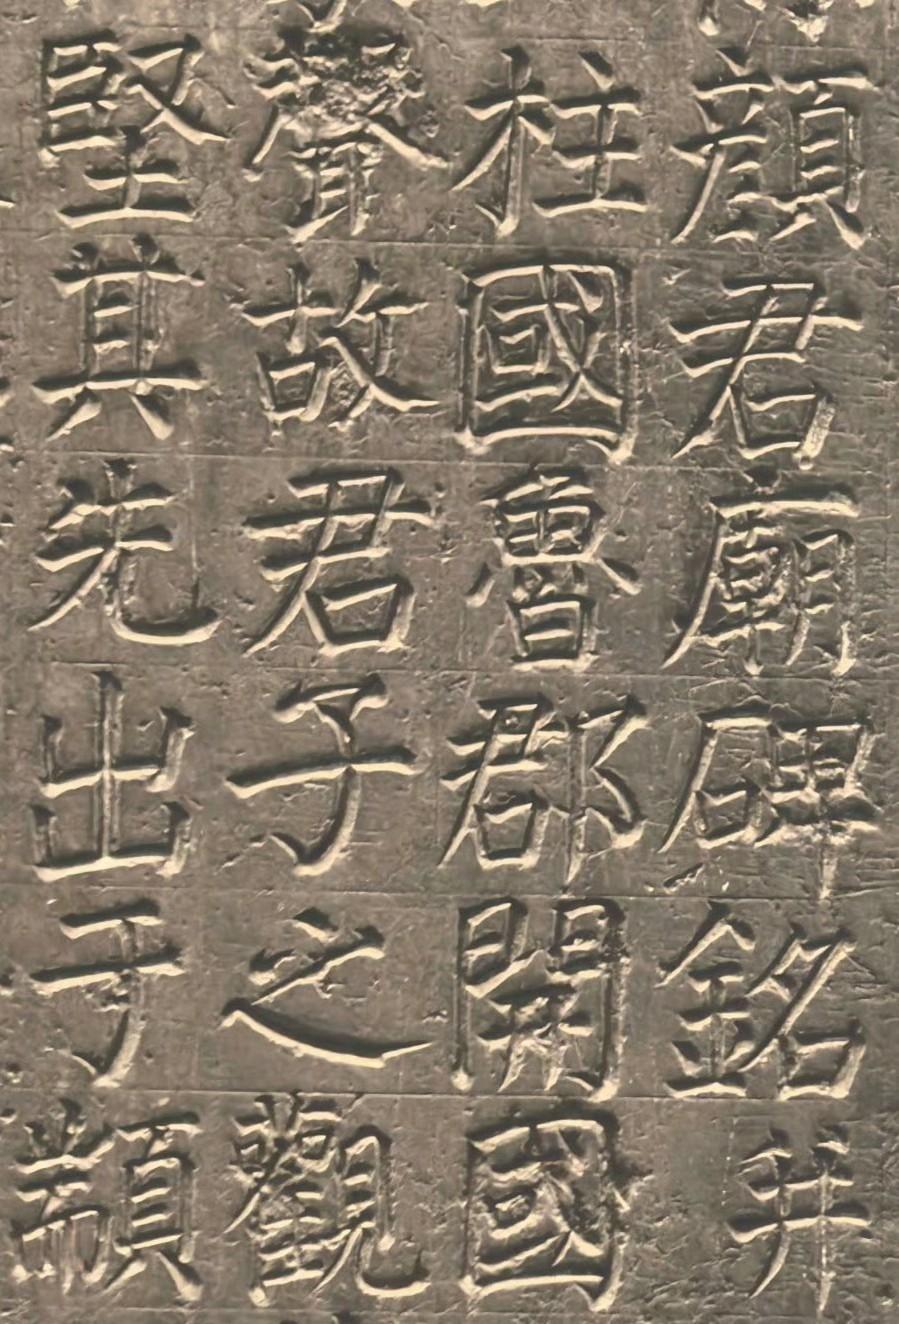 顏君廟碑銘并
柱國魯郡開國
聲故君子之觀
堅其先出于顓